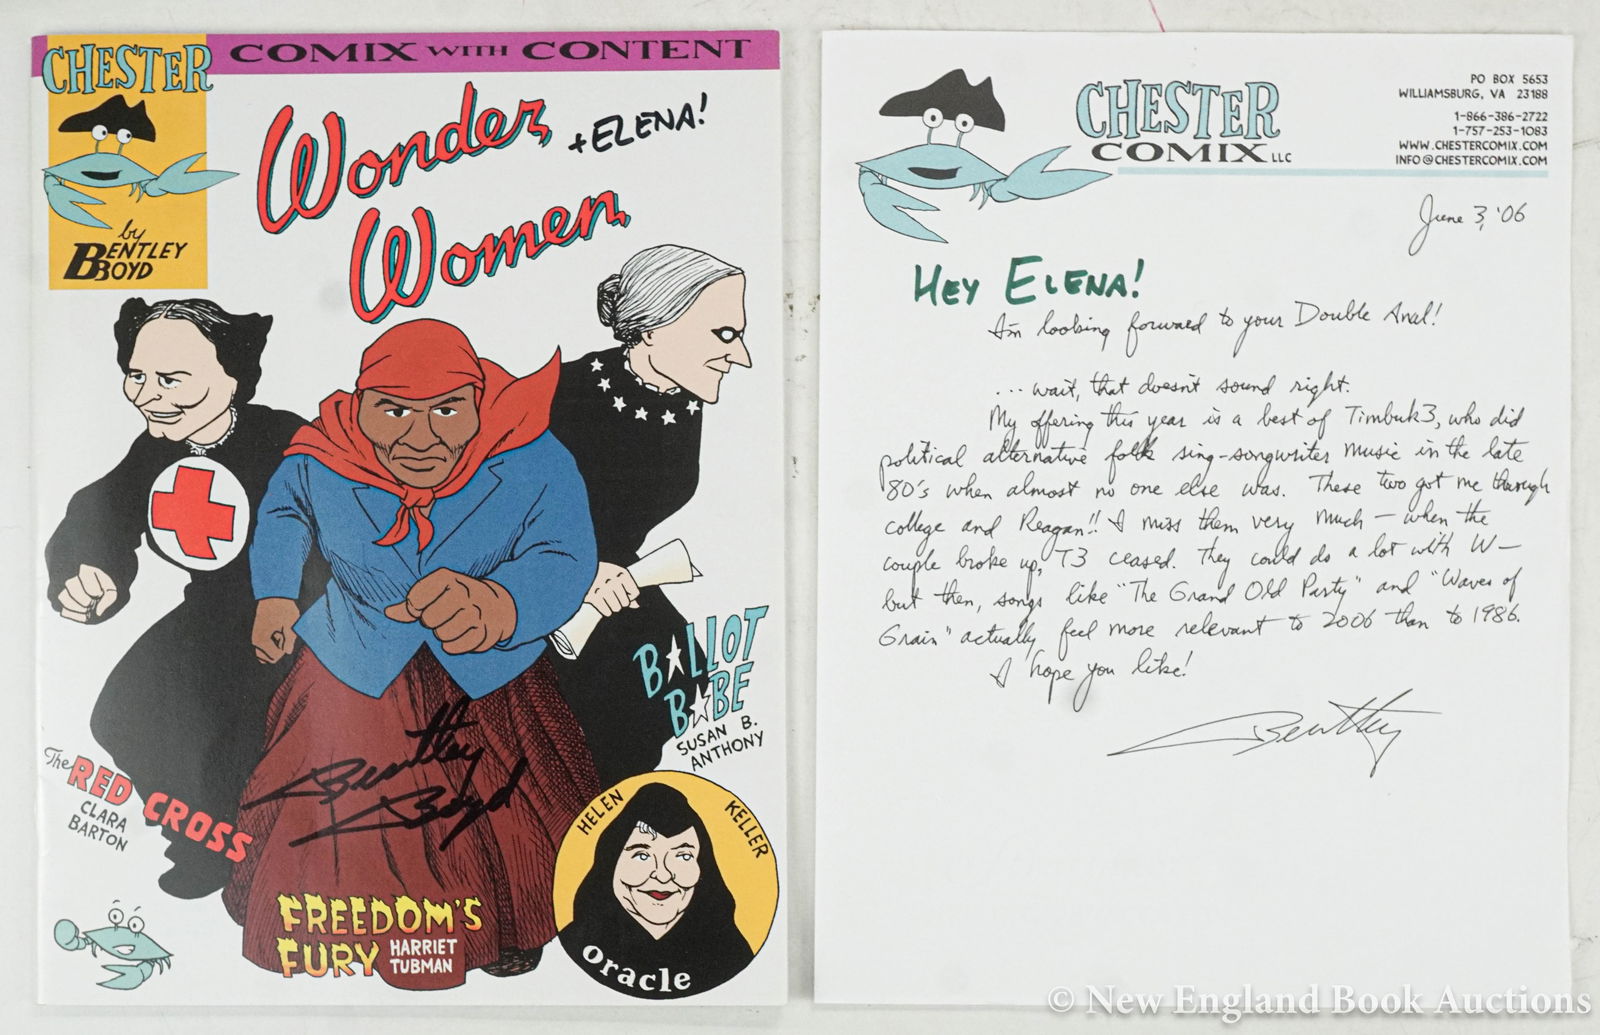 CHESTER COMIX WITH CONTENT
Wonder
+ ELENA!
Women
by
BENTLEY
BOYD
BALLOT
BABE
SUSAN B.
ANTHONY
The RED CROSS
CLARA
BARTON
Bentley
Boyd
HELEN KELLER
oracle
FREEDOM'S
FURY
HARRIET
TUBMAN
CHESTER
COMIX LLC
PO BOX 5653
WILLIAMSBURG, VA 23188
1-866-386-2722
1-757-253-1083
WWW.CHESTERCOMIX.COM
INFO@CHESTERCOMIX.COM
June 3, '06
HEY ELENA!
I'm looking forward to your Double Anal!
... wait, that doesn't sound right.
My offering this year is a best of Timbuk3, who did
political alternative folk sing-songwriter music in the late
80's when almost no one else was. These two got me through
college and Reagan!! I miss them very much — when the
couple broke up, T3 ceased. They could do a lot with W—
but then, songs like "The Grand Old Party" and "Waves of
Grain" actually feel more relevant to 2006 than to 1986.
I hope you like!
Bentley
© New England Book Auctions